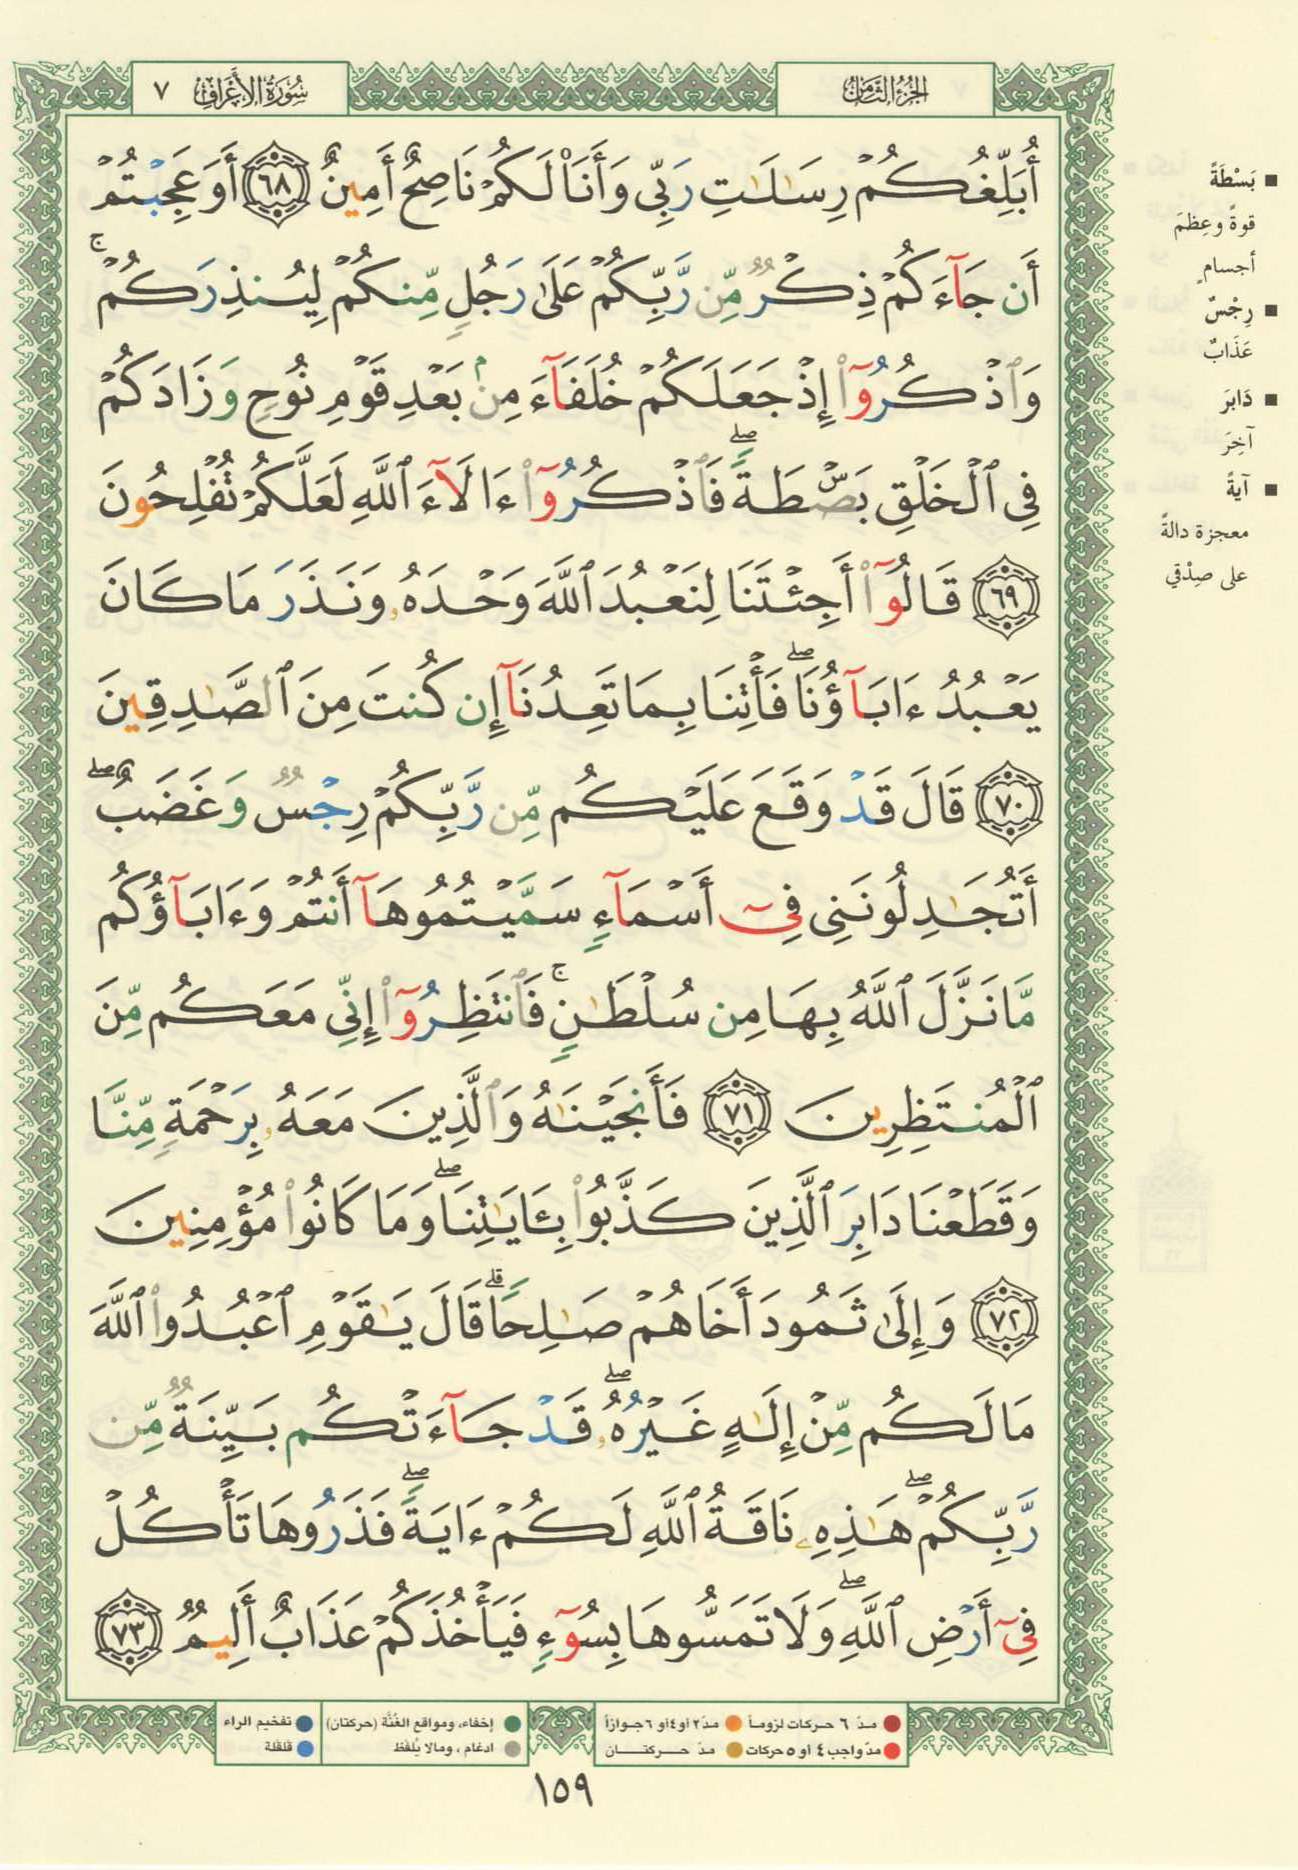 سُورَةُ الأَعْرَافِ ٧
الجُزْءُ الثَّامِنُ
أُبَلِّغُكُمْ رِسَٰلَٰتِ رَبِّى وَأَنَا۠ لَكُمْ نَاصِحٌ أَمِينٌ ٦٨ أَوَعَجِبْتُمْ
أَن جَآءَكُمْ ذِكْرٌ مِّن رَّبِّكُمْ عَلَىٰ رَجُلٍ مِّنكُمْ لِيُنذِرَكُمْ ۚ
وَٱذْكُرُوٓا۟ إِذْ جَعَلَكُمْ خُلَفَآءَ مِنۢ بَعْدِ قَوْمِ نُوحٍ وَزَادَكُمْ
فِى ٱلْخَلْقِ بَصْۜطَةً ۖ فَٱذْكُرُوٓا۟ ءَالَآءَ ٱللَّهِ لَعَلَّكُمْ تُفْلِحُونَ
٦٩ قَالُوٓا۟ أَجِئْتَنَا لِنَعْبُدَ ٱللَّهَ وَحْدَهُۥ وَنَذَرَ مَا كَانَ
يَعْبُدُ ءَابَآؤُنَا ۖ فَأْتِنَا بِمَا تَعِدُنَآ إِن كُنتَ مِنَ ٱلصَّٰدِقِينَ
٧٠ قَالَ قَدْ وَقَعَ عَلَيْكُم مِّن رَّبِّكُمْ رِجْسٌ وَغَضَبٌ ۖ
أَتُجَٰدِلُونَنِى فِىٓ أَسْمَآءٍ سَمَّيْتُمُوهَآ أَنتُمْ وَءَابَآؤُكُم
مَّا نَزَّلَ ٱللَّهُ بِهَا مِن سُلْطَٰنٍ ۚ فَٱنتَظِرُوٓا۟ إِنِّى مَعَكُم مِّنَ
ٱلْمُنتَظِرِينَ ٧١ فَأَنجَيْنَٰهُ وَٱلَّذِينَ مَعَهُۥ بِرَحْمَةٍ مِّنَّا
وَقَطَعْنَا دَابِرَ ٱلَّذِينَ كَذَّبُوا۟ بِـَٔايَٰتِنَا ۖ وَمَا كَانُوا۟ مُؤْمِنِينَ
٧٢ وَإِلَىٰ ثَمُودَ أَخَاهُمْ صَٰلِحًا ۗ قَالَ يَٰقَوْمِ ٱعْبُدُوا۟ ٱللَّهَ
مَا لَكُم مِّنْ إِلَٰهٍ غَيْرُهُۥ ۖ قَدْ جَآءَتْكُم بَيِّنَةٌ مِّن
رَّبِّكُمْ ۖ هَٰذِهِۦ نَاقَةُ ٱللَّهِ لَكُمْ ءَايَةً ۖ فَذَرُوهَا تَأْكُلْ
فِىٓ أَرْضِ ٱللَّهِ ۖ وَلَا تَمَسُّوهَا بِسُوٓءٍ فَيَأْخُذَكُمْ عَذَابٌ أَلِيمٌ ٧٣
■ بَسْطَةً
قوةً وعِظمَ
أجسامٍ
■ رِجْسٌ
عَذَابٌ
■ دَابِرَ
آخِرَ
■ آيَةً
معجزة دالةً
على صِدْقي
مدّ ٦ حركات لزوماً
مدّ ٢ أو ٤ أو ٦ جوازاً
مدّ واجب ٤ أو ٥ حركات
مدّ حركتان
إخفاء، ومواقع الغُنَّة (حركتان)
ادغام، ومالا يُلفَظ
تفخيم الراء
قلقلة
١٥٩